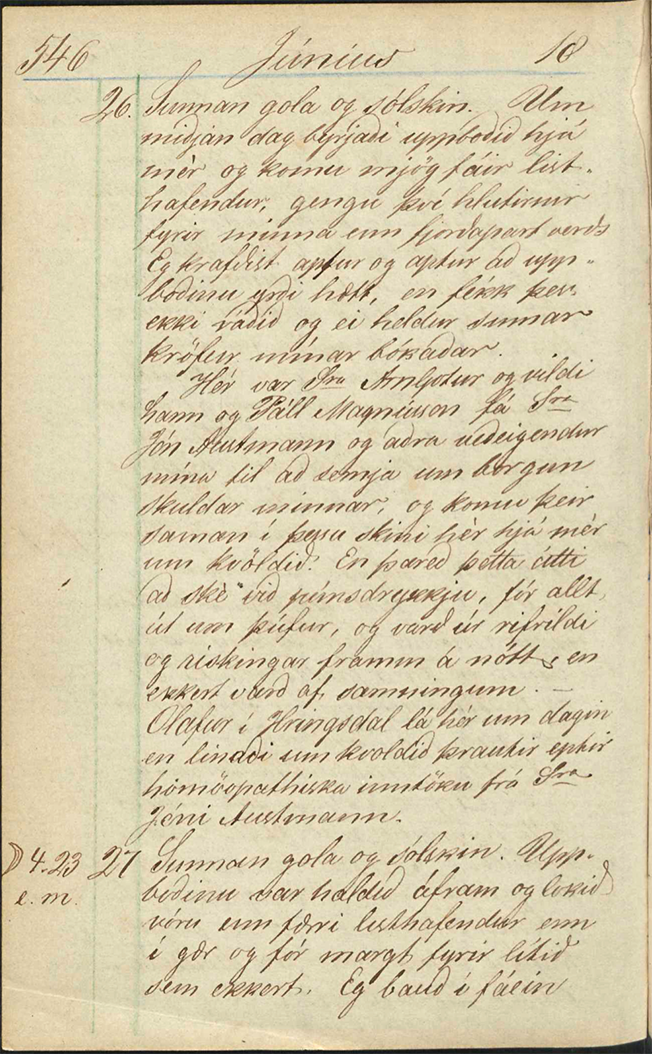 546 Június 18
26. Sunnan gola og sólskin. Um
miðjan dag byrjaði uppboðið hjá
mér og komu mjög fáir list-
hafendur, gengu því hlutirnir
fyrir minna enn fjorðapart verðs
Eg krafðist aptur og aptur að upp-
boðinu yrði hætt, en fekk þess
ekki ráðið og ei heldur sumar
kröfur mínar bókaðar.
Hér var Sra Arnljotur og vildi
hann og Páll Magnússon fá Sra
Jón Austmann og aðra veðeigendur
mína til að semja um borgun
skuldar minnar, og komu þeir
saman í þessu skini hér hjá mér
um kvöldið. En þareð þetta átti
að ské við púnsdrykkju, fór allt
út um þúfur, og varð úr rifrildi
og riskingar framm á nótt, en
ekkert varð af samningum. —
Olafur í Hringsdal lá hér um dagin
en linaði um kvoldið þrautir eptir
homöopathiska inntöku frá Sra
Jóni Austmann.
4.23 27 Sunnan gola og sólskin. Upp-
e. m. boðinu var haldið áfram og lokið
vóru enn færri listhafendur enn
í gær og fór margt fyrir lítið
sem ekkert. Eg bauð í fáein